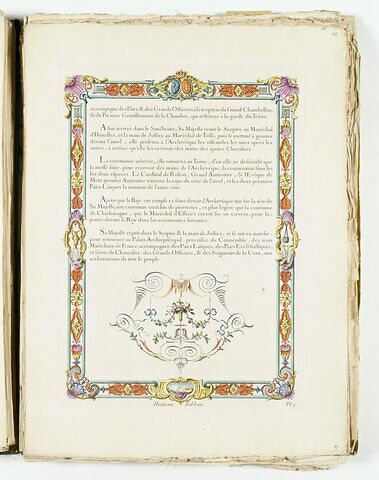 accompagné des Pairs & des Grands Officiers, à l'exception du Grand Chambellan,
& du Premier Gentilhomme de la Chambre, qui resterent à la garde du Trône.
A son arrivée dans le Sanctuaire, Sa Majesté remit le Sceptre au Maréchal
d'Huxelles, et la main de Justice au Maréchal de Tessé, puis se mettant à genoux
devant l'autel, elle presenta à l'Archevêque les offrandes les unes après les
autres, a mesure qu'elle les recevoit des mains des quatre Chevaliers.
La ceremonie achevée, elle retourna au Trône, d'où elle ne descendit que
la messe finie, pour recevoir des mains de l'Archevêque, la communion sous les
les deux espéces. Le Cardinal de Rohan, Grand Aumonier, & l'Evêque de
Metz premier Aumonier tenoient la nape du côté de l'autel, et les deux premiers
Pairs Laïques la tenoient de l'autre côté.
Après que le Roy eut rempli ce saint devoir l'Archevêque mit sur la tête de
Sa Majesté, une couronne enrichie de pierreries, et plus legere que la couronne
de Charlemagne, que le Maréchal d'Estrées reçut sur un carreau, pour la
porter devant le Roy dans les ceremonies suivantes.
Sa Majesté reprit alors le Sceptre & la main de Justice, et se mit en marche
pour retourner au Palais Archiepiscopal, precedée du Connétable, des trois
Maréchaux de France, accompagnée des Pairs Laïques, des Pairs Ecclesiastiques,
et suivie du Chancelier, des Grands Officiers, & des Seigneurs de la Cour, aux
acclamations de tout le peuple.
Tableau
Pl.